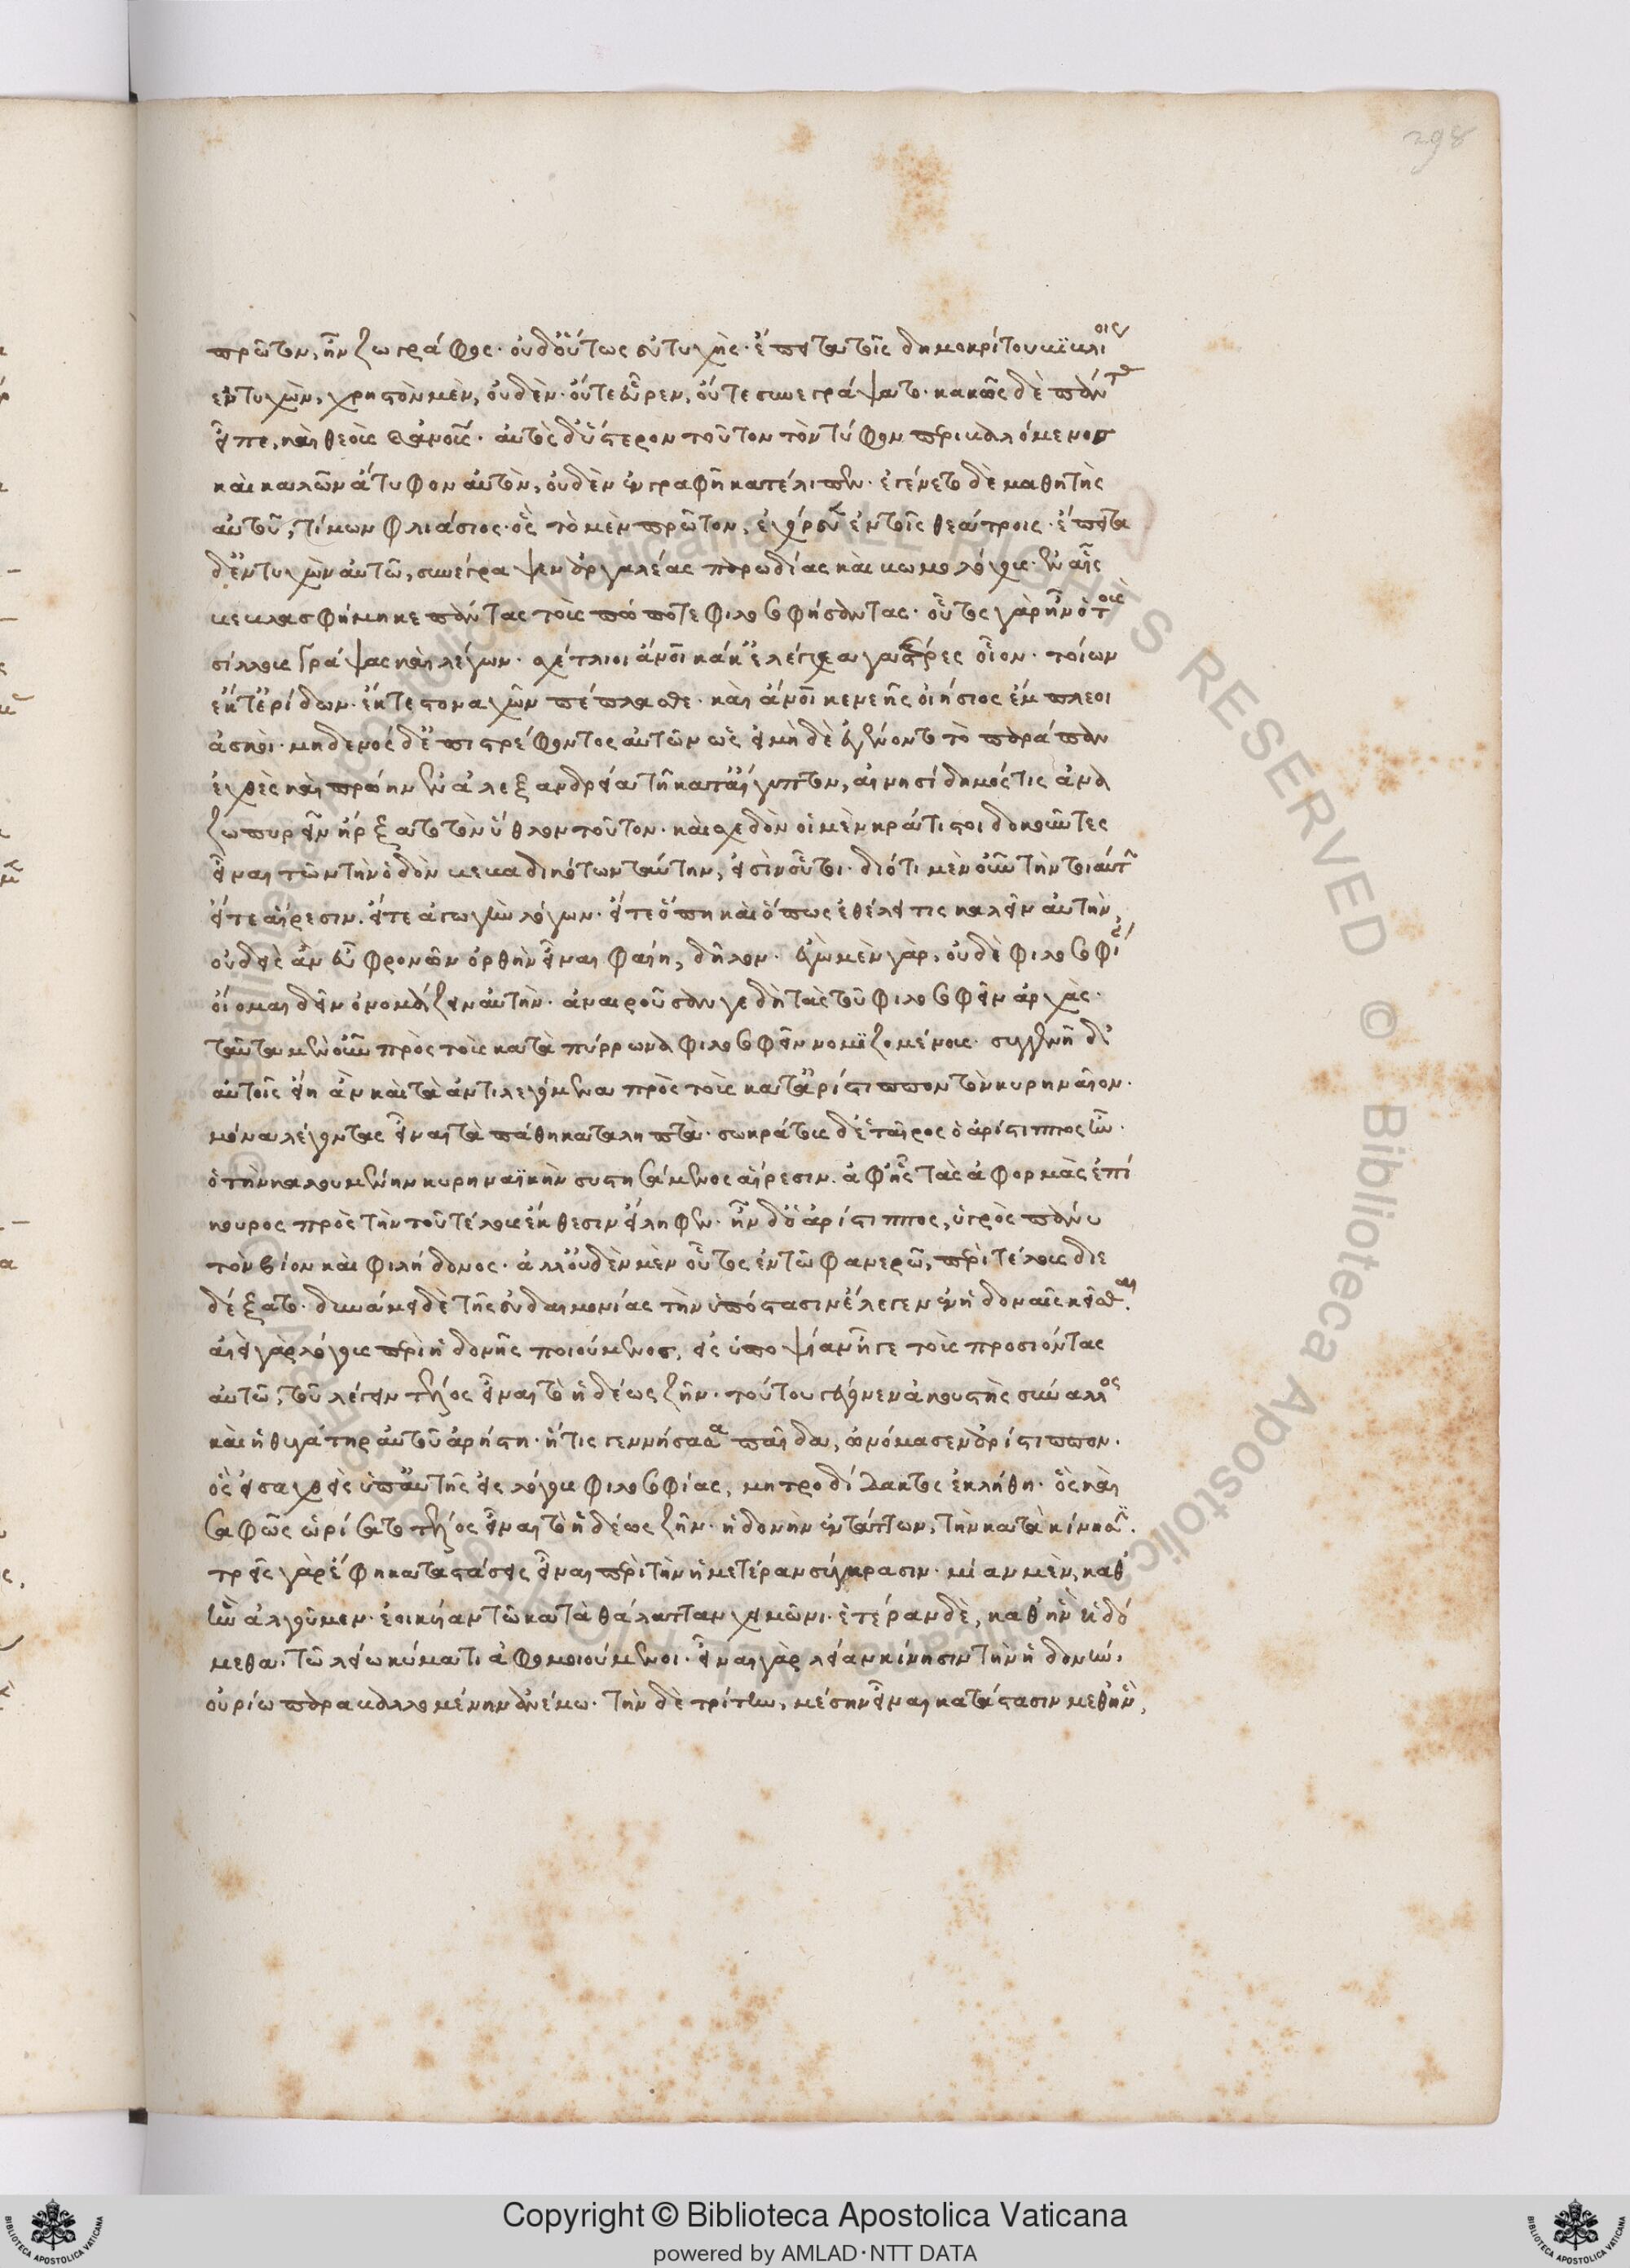 298
πρῶτον, ἦν ζωγράφος· οὐδ' οὕτως εὐτυχής· ἔπειτα τοῖς δημοκρίτου βιβλίοις
ἐντυχὼν, χρηστὸν μὲν, οὐδὲν· οὔτε εὗρεν, οὔτε συνεγράψατο· κακῶς δὲ πάντας
εἶπε, καὶ θεοὺς καὶ ἀνους· αὐτὸς δ' ὕστερον τοῦτον τὸν τύφον περιβαλόμενος
καὶ καλῶν ἄτυφον αὑτὸν, οὐδὲν ἐν γραφῆ κατέλιπεν· ἐγένετο δὲ μαθητὴς
αὐτοῦ, τίμων φλιάσιος· ὃς τὸ μὲν πρῶτον, ἐχόρευεν ἐν τοῖς θεάτροις· ἔπειτα
δ' ἐντυχὼν αὐτῶ, συνέγραψεν ἀργαλέας παρωδίας καὶ βωμολόχους· ἐν αἷς
βεβλασφήμηκε πάντας τοὺς πώποτε φιλοσοφήσαντας· οὗτος γὰρ ἦν ὁ τοὺς
σίλλους γράψας καὶ λέγων· σχέτλιοι ἄνοι κάκ' ἐλέγχεα γαστέρες οἶον· τοίων
ἔκ τ' ἐρίδων· ἔκ τε στοναχῶν πέπλασθε· καὶ ἄνοι κενεῆς οἰήσιος ἔμπλεοι
ἀσκοί· μηδενὸς δ' ἐπιστρέφοντος αὐτῶν ὡς εἰ μηδὲ ἐγένοντο τὸ παράπαν
ἐχθὲς καὶ πρώην ἐν ἀλεξανδρεία τῆ κατ' αἴγυπτον, αἰνησίδημός τις ἀνα
ζωπυρεῖν ἤρξατο τὸν ὕθλον τοῦτον· καὶ σχεδὸν οἱ μὲν κράτιστοι δοκοῦντες
εἶναι τῶν τὴν ὁδὸν βεβαδικότων ταύτην, εἰσὶν οὗτοι· διότι μὲν οὖν τὴν τοιαύτην
εἴτε αἵρεσιν· εἴτε ἀγωγὴν λόγων· εἴτε ὅπη καὶ ὅπως ἐθέλει τις καλεῖν αὐτὴν,
οὐδεὶς ἂν εὖ φρονῶν ὀρθὴν εἶναι φαίη, δῆλον· ἐγὼ μὲν γὰρ, οὐδὲ φιλοσοφί
οἴομαι δεῖν ὀνομάζειν αὐτὴν· ἀναιροῦσάν γε δὴ τὰς τοῦ φιλοσοφεῖν ἀρχὰς·
ταῦτα μὲν οὖν πρὸς τοὺς κατὰ πύρρωνα φιλοσοφεῖν νομιζομένους· συγγενῆ δ'
αὐτοῖς εἴη ἂν καὶ τὰ ἀντιλεγόμενα πρὸς τοὺς κατ' ἀρίστιππον τὸν κυρηναῖον·
μόνα λέγοντας εἶναι τὰ πάθη καταληπτά· σωκράτους δ' ἑταῖρος ὁ ἀρίστιππος ἦν·
ὁ τὴν καλουμένην κυρηναϊκὴν συστησάμενος αἵρεσιν· ἀφ' ἧς τὰς ἀφορμὰς ἐπί
κουρος πρὸς τὴν τοῦ τέλους ἔκθεσιν εἴληφεν· ἦν δ' ὁ ἀρίστιππος, ὑγρὸς πάνυ
τὸν βίον καὶ φιλήδονος· ἀλλ' οὐδὲν μὲν οὗτος ἐν τῶ φανερῶ, περὶ τέλους διε
λέξατο· δυνάμει δὲ τῆς εὐδαιμονίας τὴν ὑπόστασιν ἔλεγεν ἐν ἡδοναῖς κεῖσθαι.
ἀεὶ γὰρ λόγους περὶ ἡδονῆς ποιούμενος, εἰς ὑποψίαν ἦγε τοὺς προσιόντας
αὐτῶ, τοῦ λέγειν τέλος εἶναι τὸ ἡδέως ζῆν· τούτου γέγονεν ἀκουστὴς σὺν ἄλλοις
καὶ ἡ θυγάτηρ αὐτοῦ ἀρήτη· ἥτις γεννήσασα παῖδα, ὠνόμασεν ἀρίστιππον·
ὃς εἰσαχθεὶς ὑπ' αὐτῆς εἰς λόγους φιλοσοφίας, μητροδίδακτος ἐκλήθη· ὃς καὶ
σαφῶς ὡρίσατο τέλος εἶναι τὸ ἡδέως ζῆν· ἡδονὴν ἐντάττων, τὴν κατὰ κίνησιν.
τρεῖς γὰρ ἔφη καταστάσεις εἶναι περὶ τὴν ἡμετέραν σύγκρασιν· μίαν μὲν, καθ'
ἣν ἀλγοῦμεν· ἐοικυῖαν τῶ κατὰ θάλατταν χειμῶνι· ἑτέραν δὲ, καθ' ἣν ἡδό
μεθα· τῶ λείω κύματι ἀφομοιούμενοι· εἶναι γὰρ λείαν κίνησιν τὴν ἡδονήν,
οὐρίω παραβαλλομένην ἀνέμω· τὴν δὲ τρίτην, μέσην εἶναι κατάστασιν μεθ' ἣν,
Biblioteca Apostolica Vaticana
ALL RIGHTS RESERVED
© Biblioteca Apostolica Vaticana
Copyright © Biblioteca Apostolica Vaticana
powered by AMLAD·NTT DATA
BIBLIOTECA APOSTOLICA VATICANA
BIBLIOTECA APOSTOLICA VATICANA